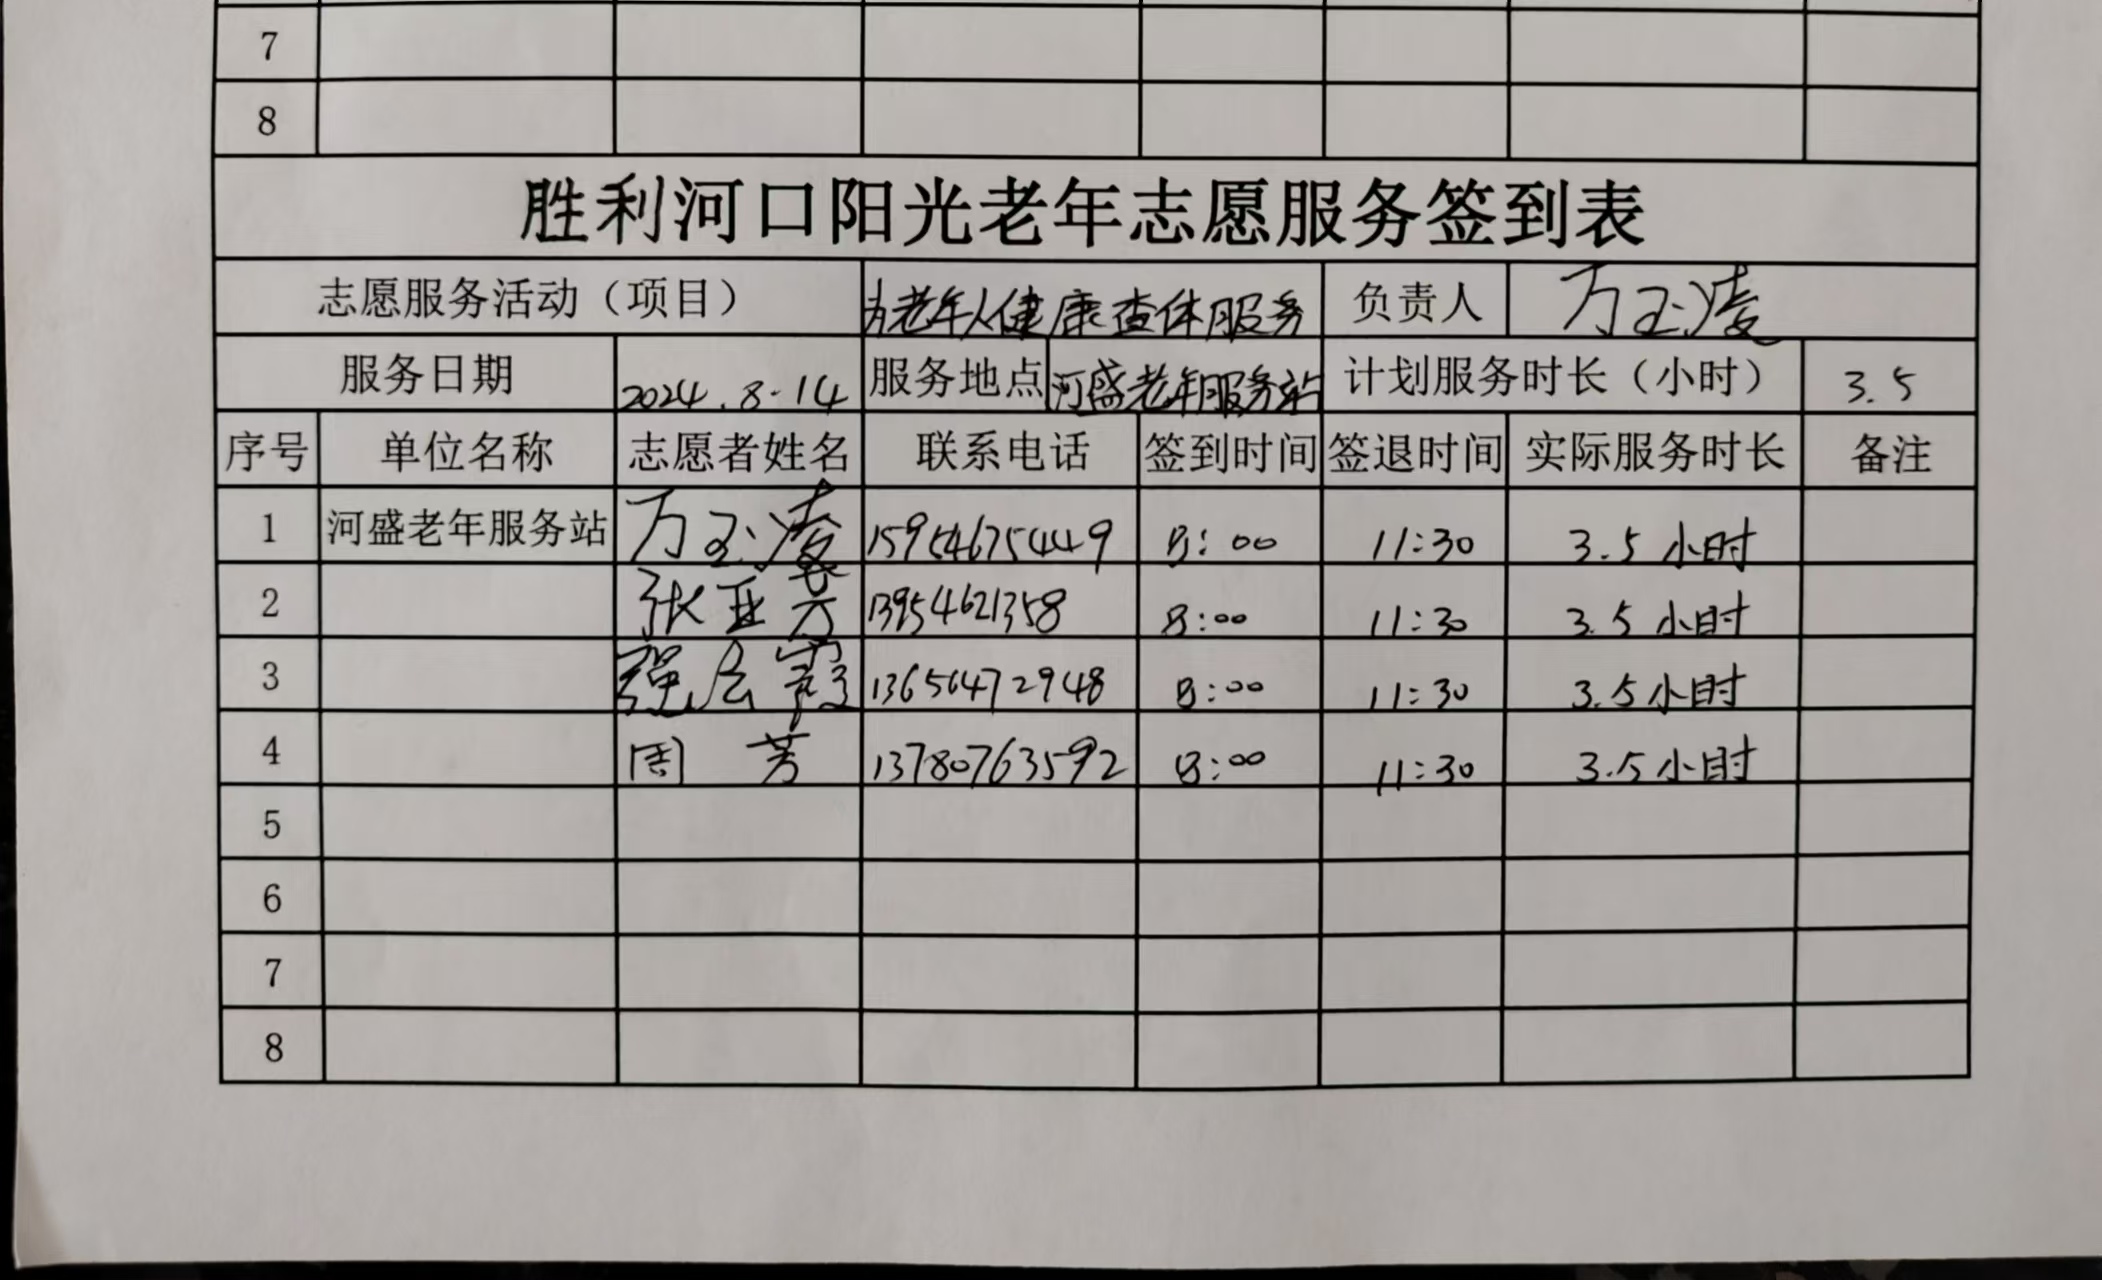 7
8
胜利河口阳光老年志愿服务签到表
志愿服务活动（项目） 为老年人健康查体服务 负责人 万玉凌
服务日期 2024.8.14 服务地点 河盛老年服务站 计划服务时长（小时） 3.5
序号 单位名称 志愿者姓名 联系电话 签到时间 签退时间 实际服务时长 备注
1 河盛老年服务站 万玉凌 15954675449 8:00 11:30 3.5小时
2 张亚芳 13954621358 8:00 11:30 3.5小时
3 强 霞 13656472948 8:00 11:30 3.5小时
4 周芳 13780763592 8:00 11:30 3.5小时
5
6
7
8